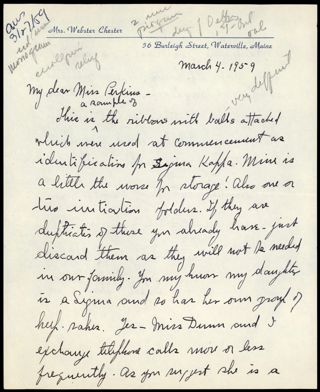 ans
3/07/59
monogram
scroll pin
relief
2 nine
program
Mrs. Webster Chester
56 Burleigh Street, Waterville, Maine
March 4 - 1959
very different
My dear Miss Perkins -
a sample of
This is the ribbon with balls attached
which were used at commencement as
identification for Sigma Kappa. Mine is
a little the worse for storage! Also one or
two initiation folders. If they are
duplicates of those you already have - just
discard them as they will not be needed
in our family. You may know my daughter
is a Sigma and so has her own group of
keep-sakes. Yes - Miss Dunn and I
exchange telephone calls more or less
frequently. As you suggest she is a